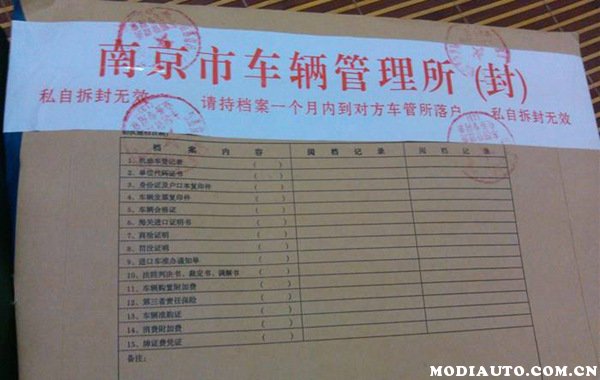 南京市车辆管理所(封)
私自拆封无效 请持档案一个月内到对方车管所落户 私自拆封无效
档案内容 阅档记录 阅档记录
1、机动车登记表 ( )
2、单位代码证书 ( )
3、身份证及户口本复印件
4、车辆发票复印件 ( )
5、车辆合格证 ( )
6、海关进口证明书 ( )
7、商检证明 ( )
8、罚没证明 ( )
9、进口车准办通知单 ( )
10、法院判决书、裁定书、调解书 ( )
11、车辆购置附加费 ( )
12、第三者责任保险 ( )
13、车辆准购证 ( )
14、消费附加费 ( )
15、牌证费凭证 ( )
备注:
MODIAUTO.COM.CN